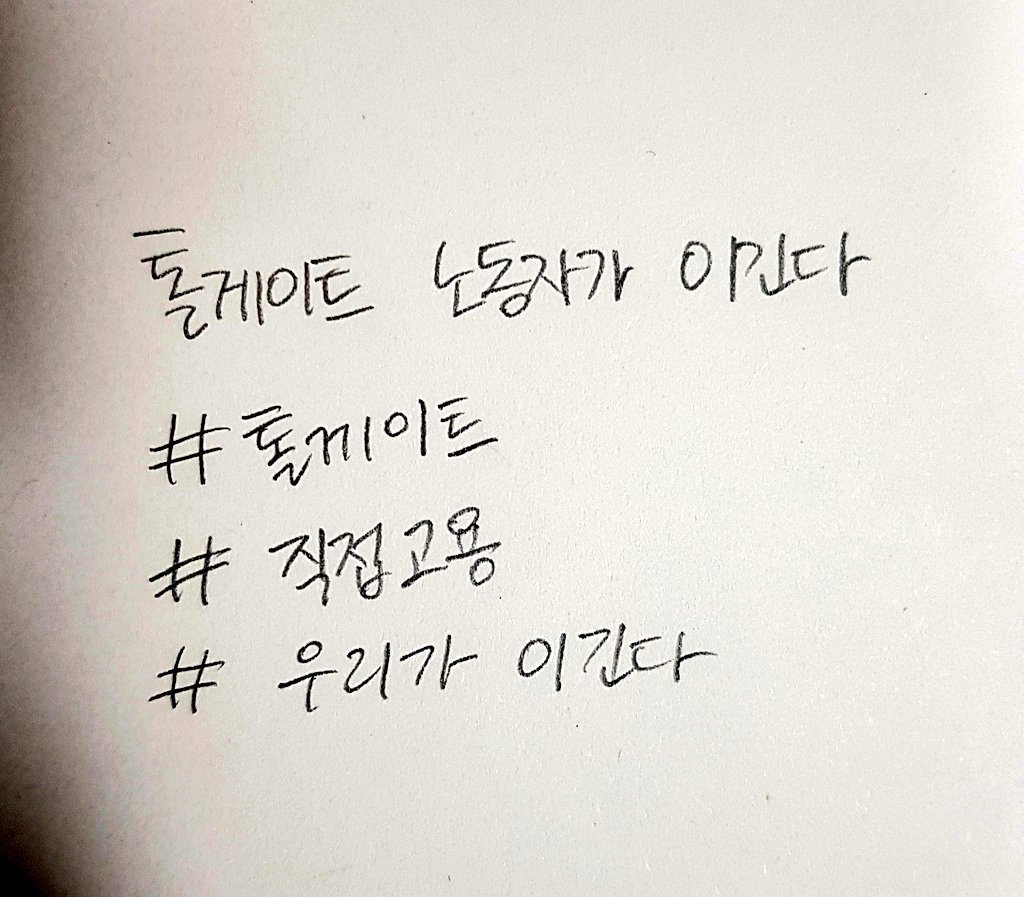 톨게이트 노동자가 이긴다
#톨게이트
# 직접고용
# 우리가 이긴다